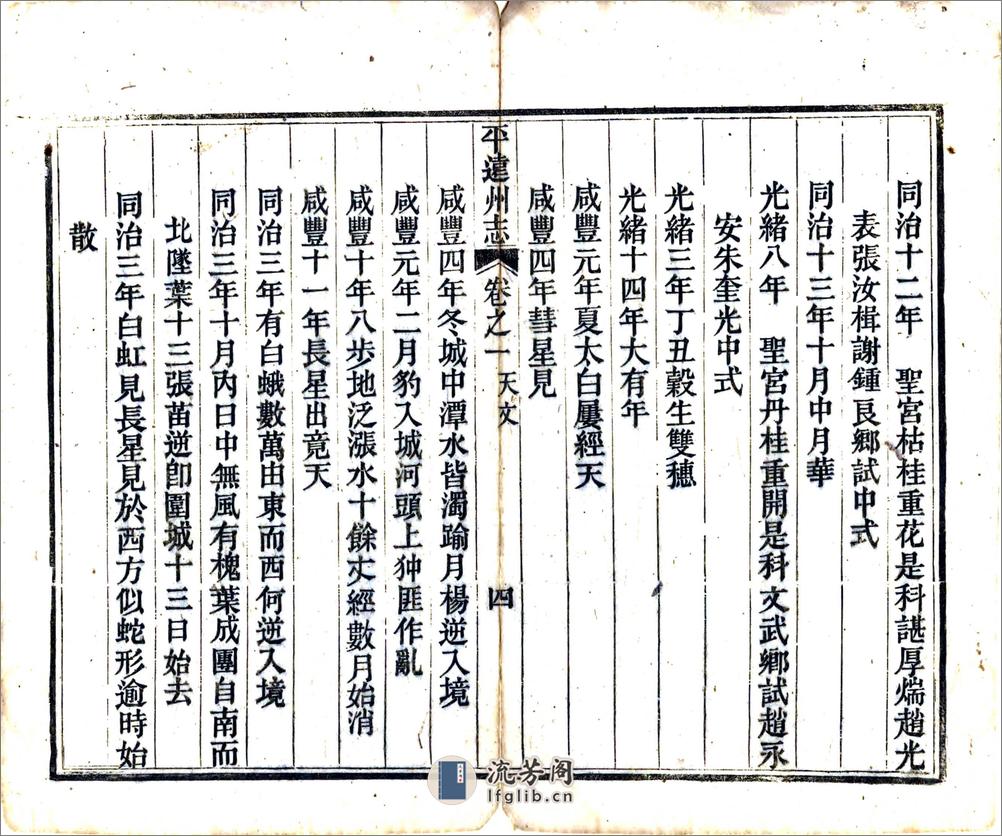 同治十二年　聖宮枯桂重花是科諶厚煓趙光
表張汝楫謝鍾良鄉試中式
同治十三年十月中月華
光緒八年　聖宮丹桂重開是科文武鄉試趙永
安朱奎光中式
光緒三年丁丑穀生雙穗
光緒十四年大有年
咸豐元年夏太白屢經天
咸豐四年彗星見
平遠州志　卷之一　天文　四
咸豐四年冬城中潭水皆濁踰月楊逆入境
咸豐元年二月豹入城河頭上狆匪作亂
咸豐十年八步地泛漲水十餘丈經數月始消
咸豐十一年長星出竟天
同治三年有白蛾數萬由東而西何逆入境
同治三年十月內日中無風有槐葉成團自南而
北墜葉十三張苗逆卽圍城十三日始去
同治三年白虹見長星見於西方似蛇形逾時始
散
流芳阁
lfglib.cn